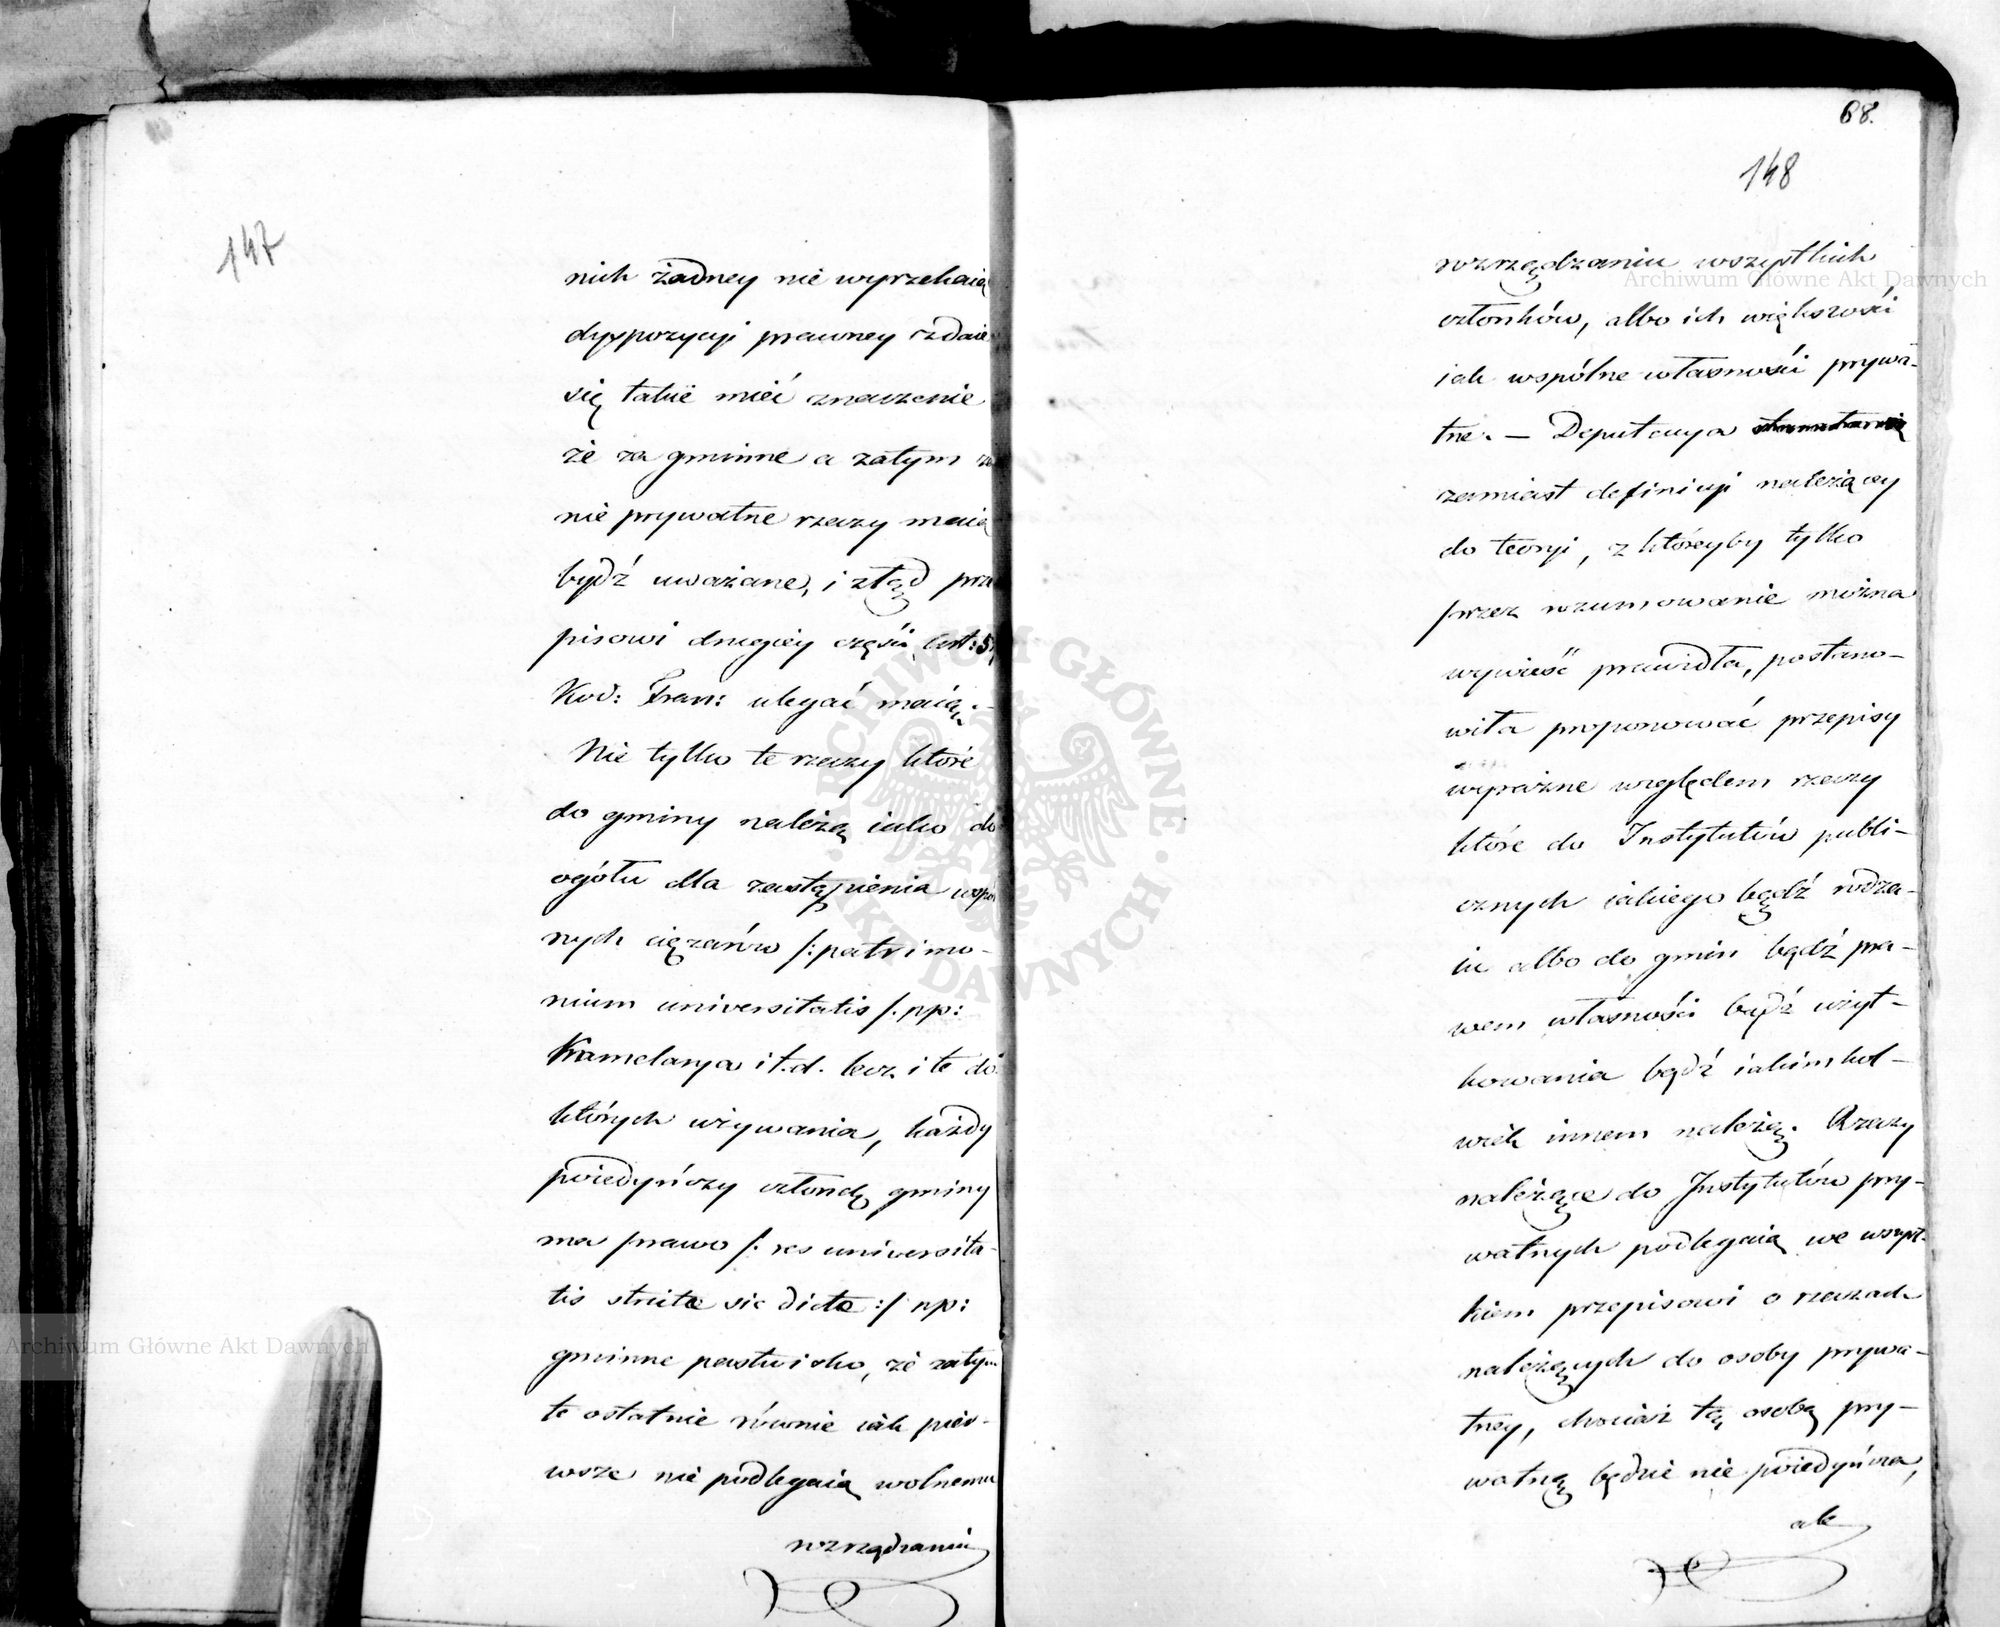 147
nich żadney nie wyrzekaią
dyspozycyi prawney zdaie
się takie mieć znaczenie
że za gminne a zatym za
nie prywatne rzeczy maią
bydź uważane, i ztąd prze
pisowi drugiey części Art: 5
Kod: Fran: ulegać maią.—
Nie tylko te rzeczy które
do gminy należą iako do
ogółu dla zastąpienia wspól
nych ciężarów /: patrimo-
nium universitatis /. np:
Kramelarya i t.d. lecz i te do
których używania, każdy
poiedyńczy członek gminy
ma prawo /: res universita-
tis stricte sic dicta :/ np:
gminne pastwisko, że zatym
te ostatnie równie iak pier-
wsze nie podlegaią wolnemu
rozrządzaniu
68.
148
rozrządzaniu wszystkich
członków, albo ich większości
iak wspólne własności prywa-
tne. — Deputacya
zamiast definicyi należącey
do teoryi, z któreyby tylko
przez rozumowanie można
wywieść prawidła, postano-
wiła proponować przepisy
wyraźne względem rzeczy
które do Instytutów publi-
cznych iakiego bądź rodza-
iu albo do gmin bądź pra-
wem własności bądź użyt-
kowania bądź iakimkol-
wiek innem należą. Rzeczy
należące do Instytutów pry-
watnych podlegaią we wszyst-
kiem przepisowi o rzeczach
należących do osoby prywa-
tney, chociaż tą osobą pry-
watną będzie nie poiedyńcza,
ale
Archiwum Główne Akt Dawnych
Archiwum Główne Akt Dawnych
ARCHIWUM GŁÓWNE · AKT DAWNYCH ·